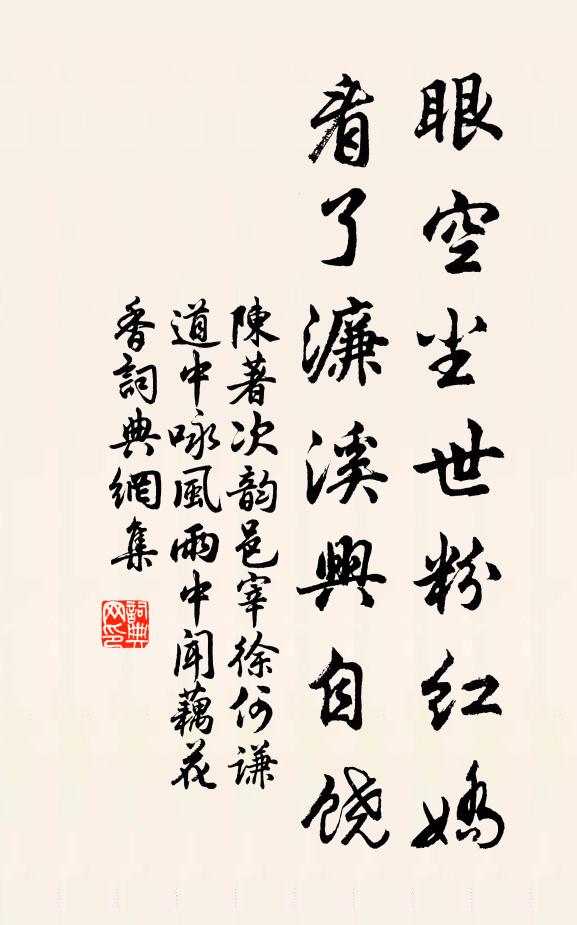 眼空尘世粉红娇
看了濂溪興自饶
陳著次韵邑宰徐何謙
道中咏風雨中闻藕花
香詞典網集
詞典网印